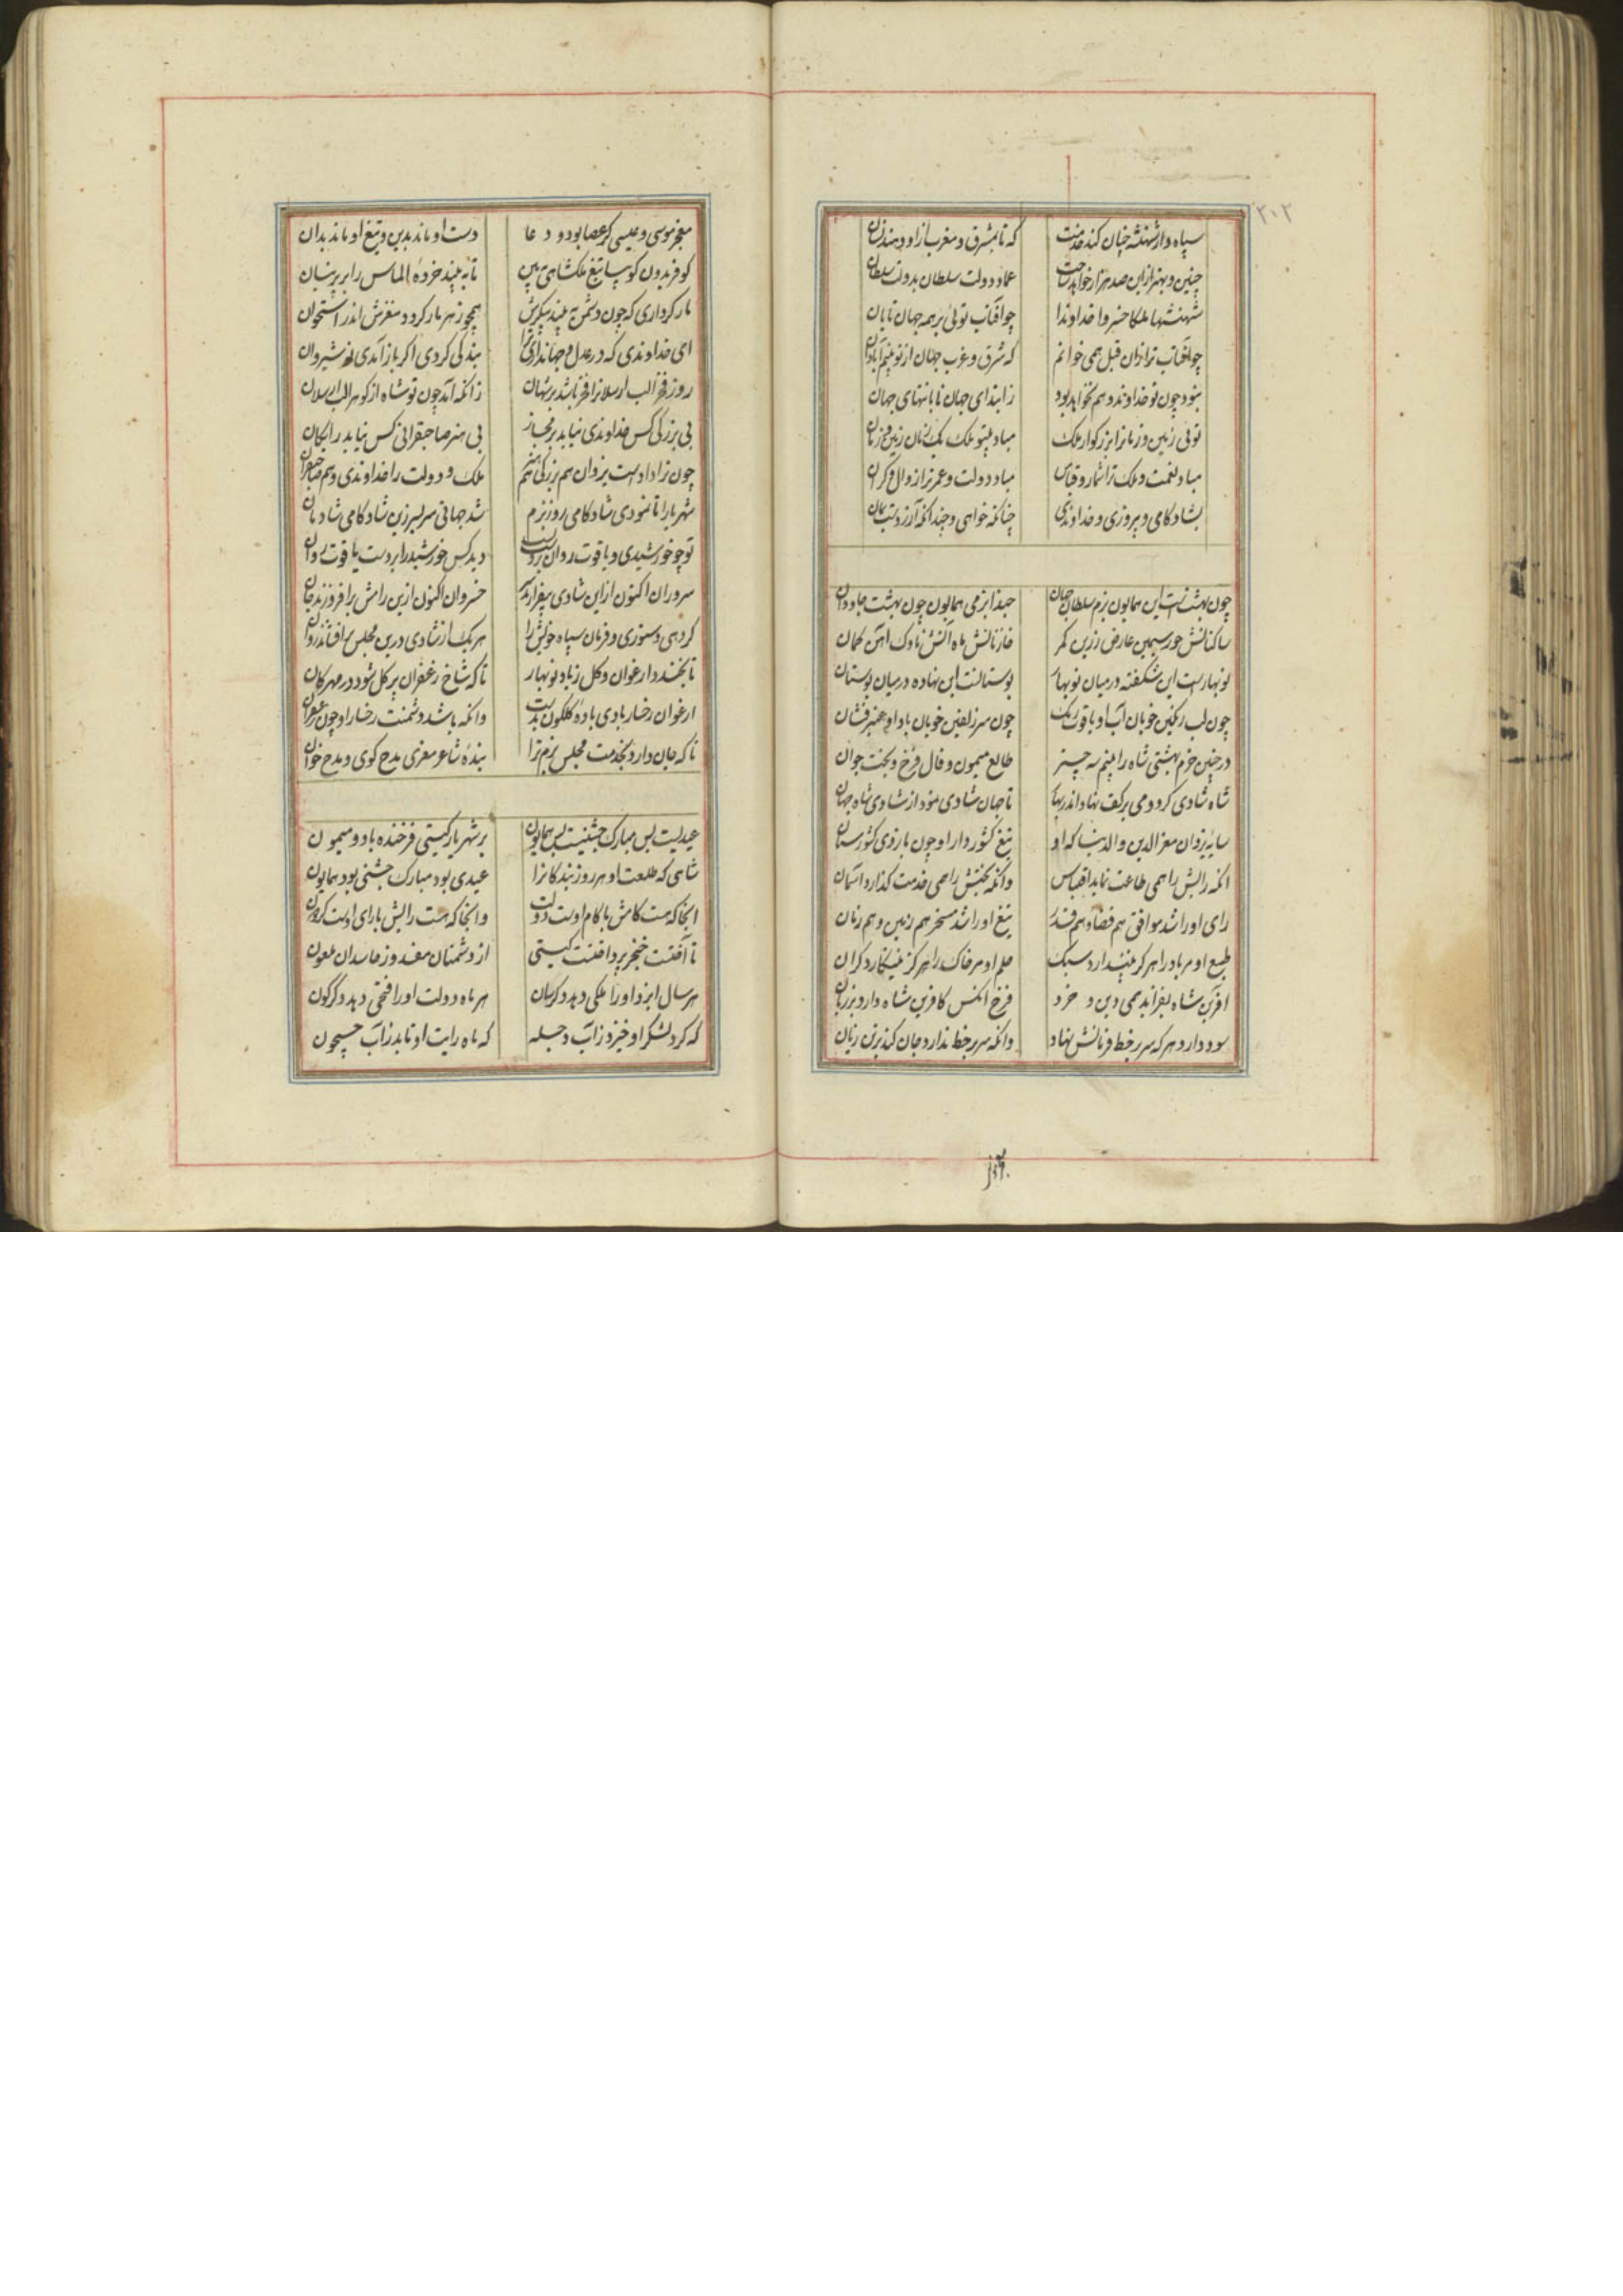 ۲۰۲
سپاه دار شهنشه چنان کند خدمت که تا بمشرق و مغرب ازو دهند نشان
چنین و بهتر ازین صد هزار خواهد ساخت عماد دولت سلطان بدولت سلطان
شهنشها ملکا خسروا خداوندا چو آفتاب توئی بر همه جهان تابان
چو آفتاب ترا زان قبل همی خوانم که شرق و غرب جهان از تو بینم آبادان
نبود چون تو خداوند و هم نخواهد بود ز ابتدای جهان تا بانتهای جهان
توئی زمین و زمانرا بزرگوار ملک مباد بیتو ملک یک زمان زمین و زمان
مباد نعمت و ملک ترا شمار و قیاس مباد دولت و عمر ترا زوال و کران
بشادکامی و پیروزی و خداوندی چنانکه خواهی و چندانکه آرزوست بمان
چون بهشتست این همایون بزم سلطان جهان حبذا بزمی همایون چون بهشت جاودان
ساکنانش حور سیمین عارض زرین کمر خازنانش ماه آتش ناوک آهن کمان
نوبهارست این شکفته در میان نوبهار بوستانست این نهاده در میان بوستان
چون لب رنگین خوبان آب او یاقوت رنگ چون سر زلفین خوبان باد او عنبرفشان
در چنین خرم بهشتی شاه را بینم سه چیز طالع میمون و فال فرخ و بخت جوان
شاه شادی کرد و می بر کف نهاد اندر بهار تا جهان شادی نمود از شادی شاه جهان
سایه یزدان معز الدین و الدنیا که او تیغ کشور دار او چون بازوی کشورستان
آنکه رایش را همی طاعت نماید اقتباس وانکه بختش را همی خدمت گذارد آسمان
رای او را شد موافق هم قضا و هم قدر تیغ او را شد مسخر هم زمین و هم زمان
طبع او مر باد را هرگز نپندارد سبک حلم او مر خاک را هرگز نینگارد گران
آفرین شاه بفزاید همی دین و خرد فرخ آنکس کافرین شاه دارد بر زبان
سود دارد هر که سر بر خط فرمانش نهاد وانکه سر بر خط ندارد جان کند بر تن زیان
معجز موسی و عیسی گر عصا بود و دعا دست او ماند بدین و تیغ او ماند بدان
کو فریدون گو بیا تیغ ملکشاهی ببین تا به بیند خرده الماس را بر پرنیان
مار کرداری که چون دشمن به بیند پیکرش همچو زهر مار گردد مغزش اندر استخوان
ای خداوندی که در عدل و جهانداری ترا بندگی کردی اگر باز آمدی نوشیروان
روز فخر الب ارسلانرا فخر باشد بر شهان زانکه آمد چون تو شاه از گوهر الب ارسلان
بی بزرگی کس خداوندی نیابد بر مجاز بی هنر صاحبقرانی کس نیابد رایگان
چون ترا دادست یزدان هم بزرگی هم هنر ملک و دولت را خداوندی و هم صاحبقران
شهریارا تا نمودی شادکامی روز بزم شد جهانی سر بسر زین شادکامی شادمان
تو چو خورشیدی و یاقوت روان بر دست دید کس خورشید را بر دست یاقوت روان
سروران اکنون ازین شادی بیفرازند سر خسروان اکنون ازین رامش برافروزند جان
کردهی دستوری و فرمان سپاه خویش را هر یک از شادی درین مجلس برافشاند روان
تا بخندد ارغوان و گل ز باد نوبهار تا که شاخ زعفران بر گل شود در مهرگان
ارغوان رخسار بادی باده گلگون بدست وانکه باشد دشمنت رخسار او چون زعفران
تا که جان دارد بخدمت مجلس بزم ترا بنده شاعر معزی مدح گوی و مدح خوان
عیدیست بس مبارک جشنیست بس همایون بر شهریار گیتی فرخنده باد و میمون
شاهی که طلعت او هر روز بندگانرا عیدی بود مبارک جشنی بود همایون
آنجا که هست کامش با کام اوست دولت وانجا که هست رایش با رای اوست گردون
تا آفتست خنجر پرداختست گیتی از دشمنان مفسد وز حاسدان ملعون
هر سال ایزد او را ملکی دهد دگرسان هر ماه دولت او را فتحی دهد دگرگون
که گرد لشکر او خیزد ز آب دجله که ماه رایت او تابد ز آب جیحون